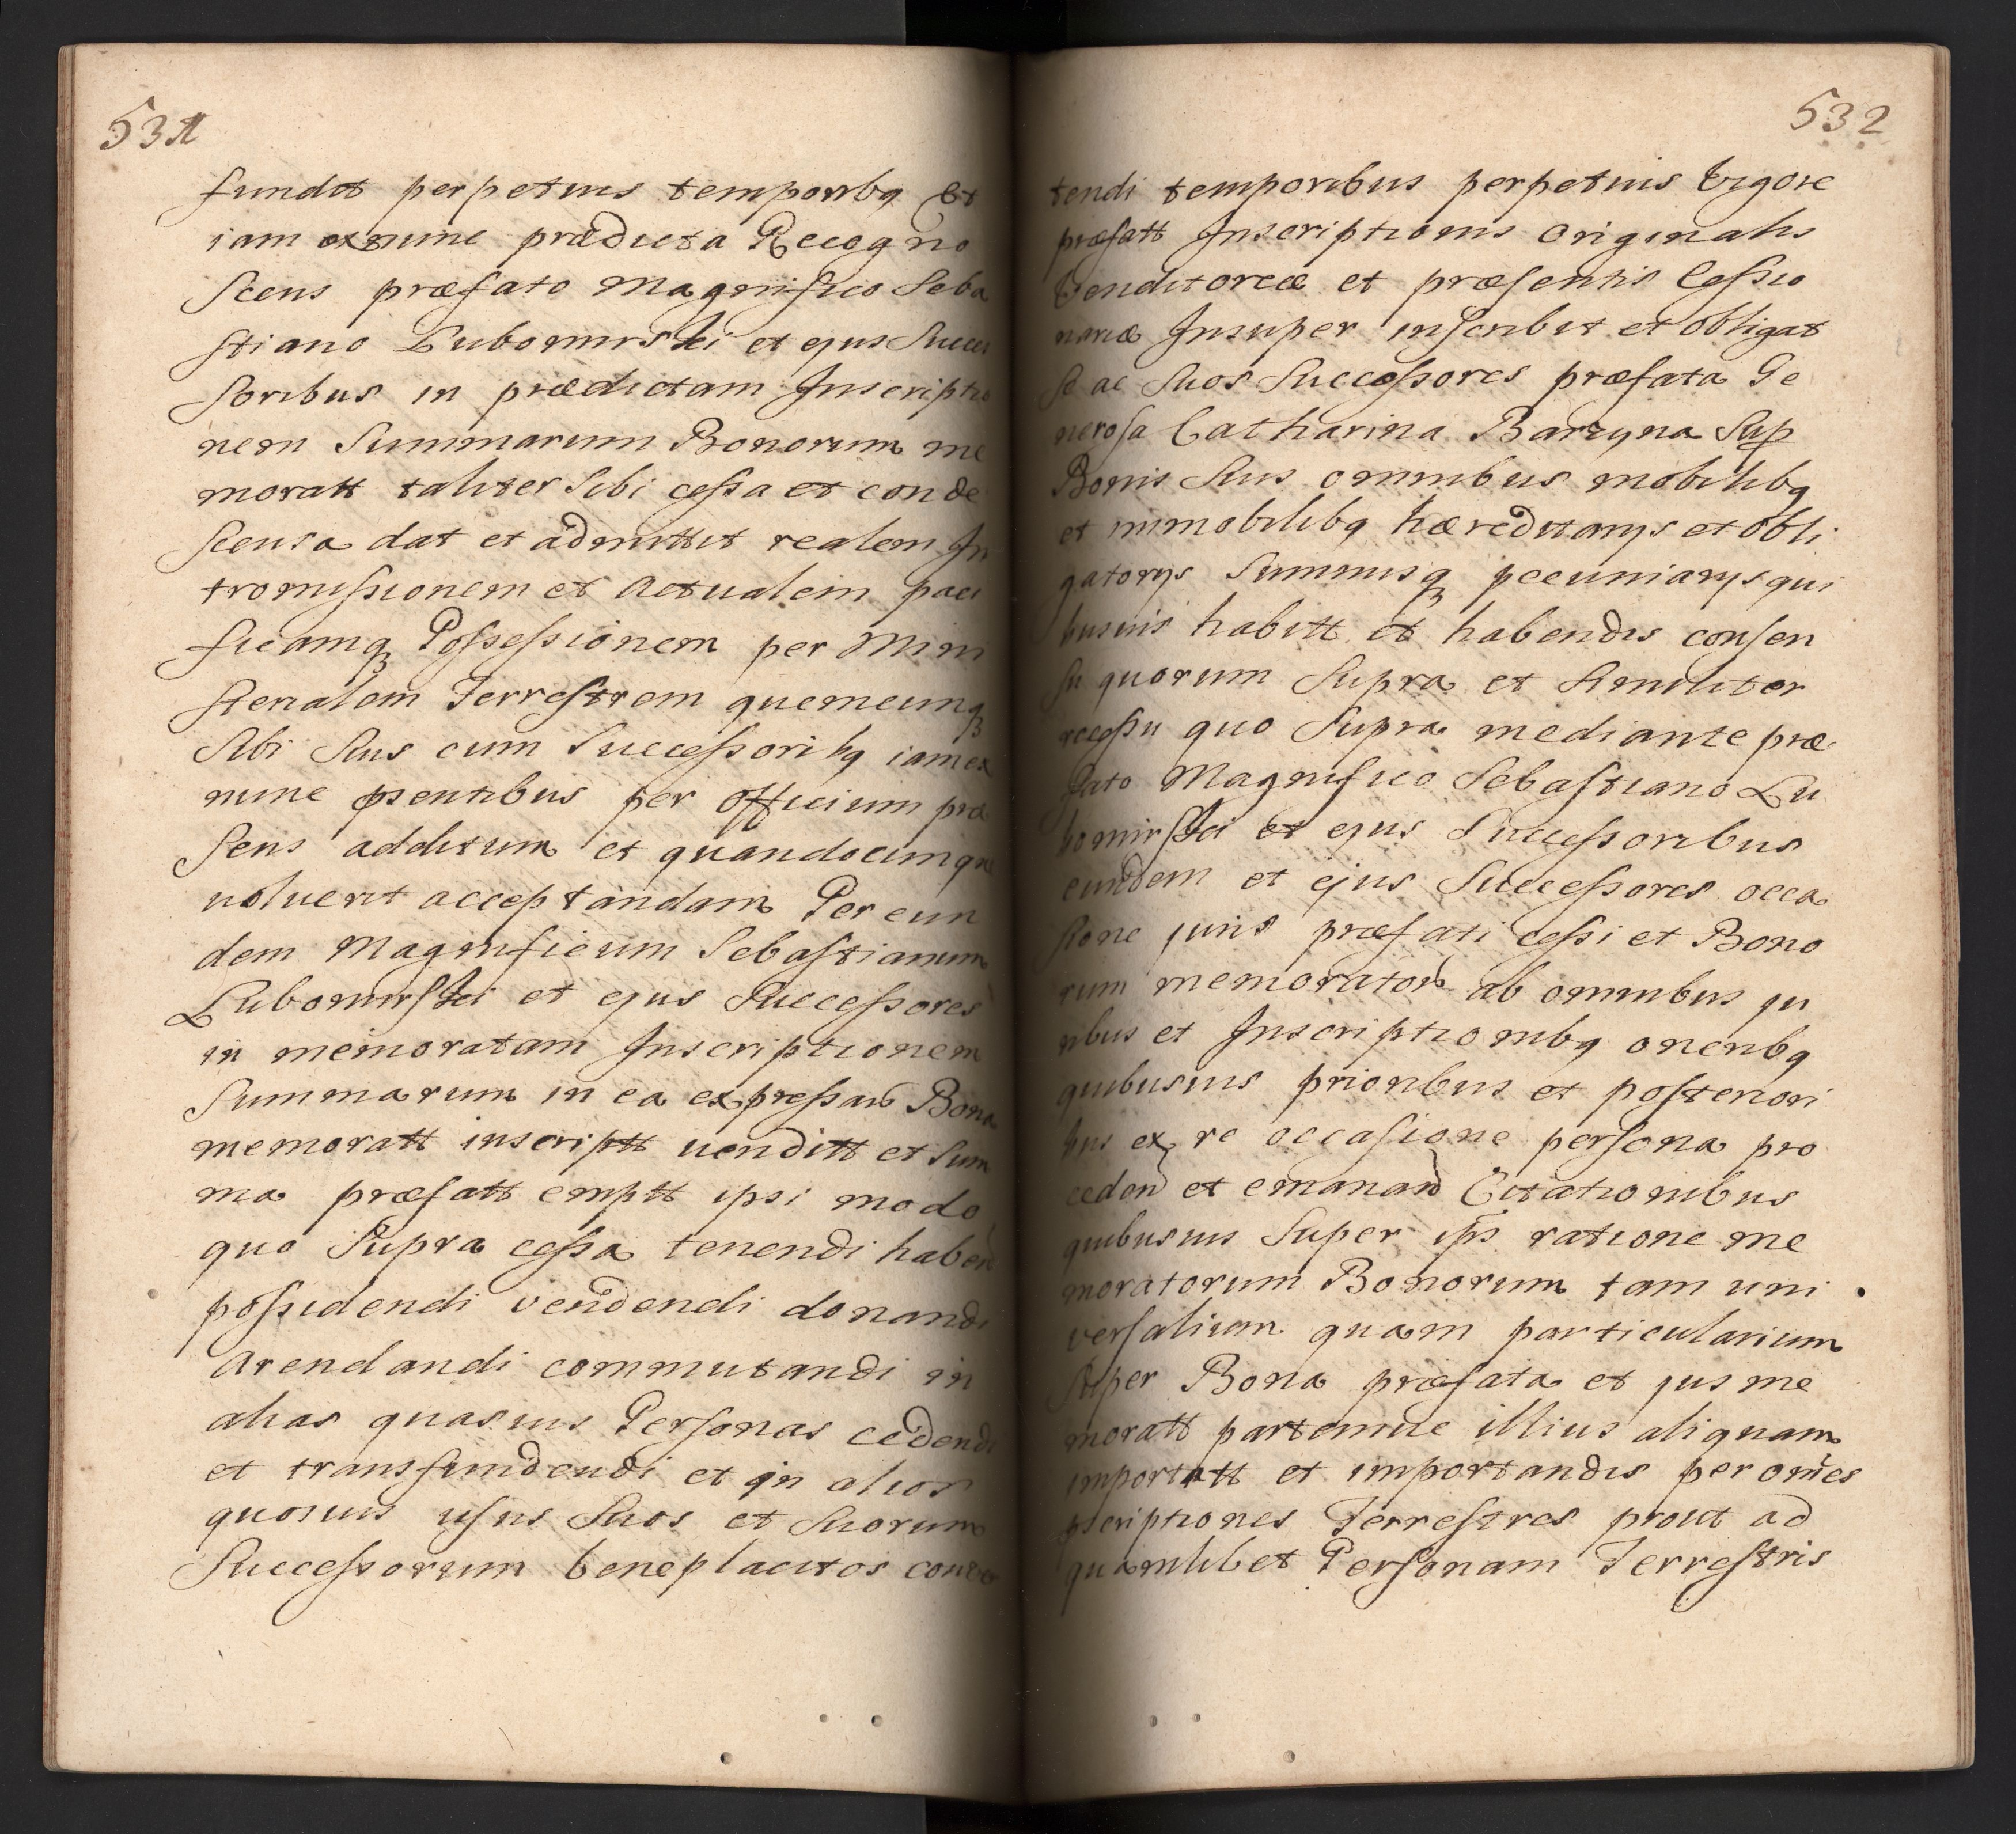 531
fundit perpetuis temporibq Et
iam ex nunc prædicta Recogno
scens præfato Magnifico Seba
stiano Lubomirski et ejus Succes
soribus in prædictam Inscriptio
nem Summarum Bonorum me
moratt taliter sibi cessa et conde
scensa dat et admittit realem In
tromissionem et Actualem paci
ficamq Possessionem per Mini
sterialem Terrestrem quemcunq
sibi suis cum Successoribq iam ex
nunc psentibus per officium præ
sens additum et quandocunque
voluerit acceptandam Per eun
dem Magnificum Sebastianum
Lubomirski et ejus Successores
in memoratam Inscriptionem
Summarum in ea expressar Bona
memoratt inscriptt venditt et Sum
ma præfatt emptt ipsi modo
quo supra cessa tenendi habend
possidendi vendendi donandi
Arendandi commutandi in
alias quasvis Personas cedendi
et transfundendi et in alios
quosvis usus Suos et Suorum
Successorum beneplacitos conver
532
tendi temporibus perpetuis Vigore
præfatt Inscriptionis Originalis
Venditoreæ et præsentis Cessio
nariæ Insuper inscribit et obligat
se ac Suos Successores præfata Ge
nerosa Catharina Barzyna Sup
Bonis Suis omnibus mobilibq
et immobilibq hæreditarys et obli
gatorys Summisq pecuniarys qui
busvis habitt et habendis consen
su quorum Supra et Similiter
recessu quo Supra mediante præ
fato Magnifico Sebastiano Lu
bomirski et ejus Successoribus
eundem et ejus Successores occa
sione juris præfati cessi et Bono
rum memorator ab omnibus ju
ribus et Inscriptionibq oneribq
quibusvis prioribus et posteriori
bus ex re occasione persona pro
ceden et emanand Citationibus
quibusvis Super ips ratione me
moratorum Bonorum tam uni
versalium quam particularium
super Bona præfata et jus me
moratt partemve illius aliquam
importatt et importandis per omes
pscriptiones Terrestres prout ad
quamlibet Personam Terrestris